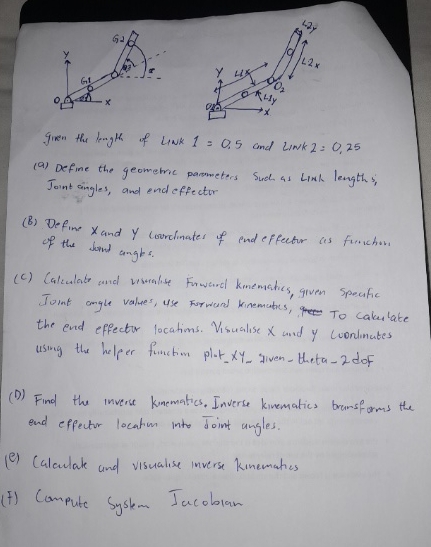 G2
Y
G1
X
Y
X
L2y
L2x
O2
L1y
given the length of LINK 1 = 0,5 and LINK 2 = 0,25
(a) Define the geometric parameters such as Link lengths,
Joint angles, and end effector
(B) Define X and Y coordinates of end effector as function
of the Joint angles.
(C) Calculate and visualise Forward kinematics, given specific
Joint angle values, use Forward kinematics, To calculate
the end effector locations. Visualise X and Y coordinates
using the helper function plot_XY_given_theta_2dof
(D) Find the inverse kinematics. Inverse kinematics transforms the
end effector location into Joint angles.
(e) Calculate and visualise inverse kinematics
(f) Compute System Jacobian